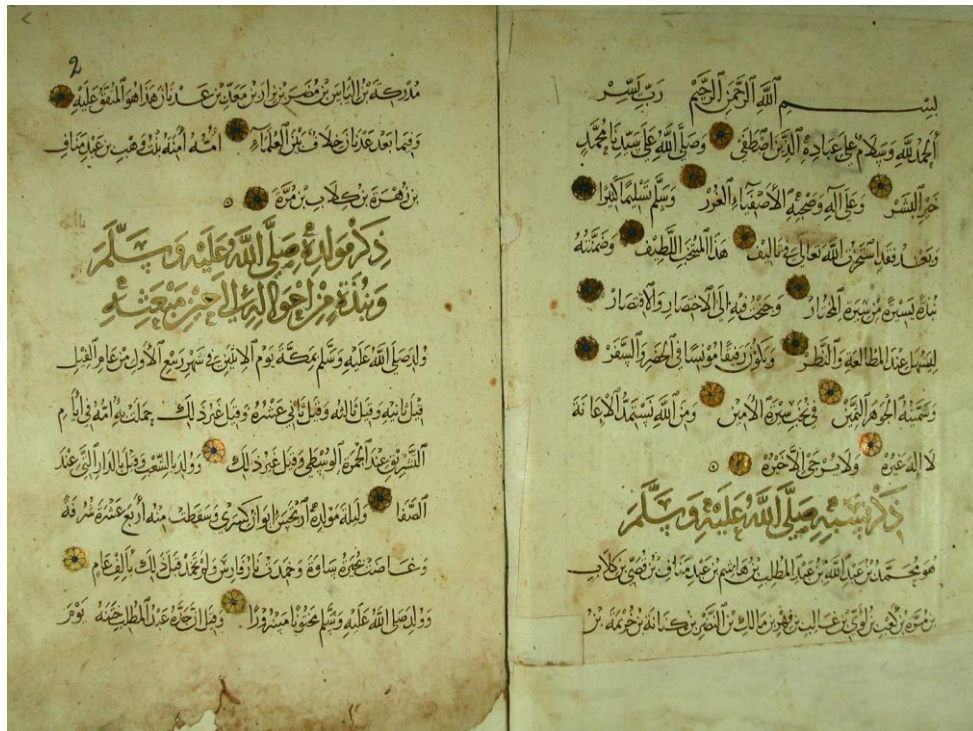 بِسْمِ اللَّهِ الرَّحْمَنِ الرَّحِيمِ رَبِّ يَسِّرْ
الحمد لله وسلام على عباده الذين اصطفى وصلى الله على سيدنا محمد
خير البشر وعلى آله وصحبه الأصفياء الغرر وسلم تسليما كثيرا
وبعد فقد استخرت الله تعالى في تأليف هذا المنتخب اللطيف وضمنته
نبذة يسيرة من سيرة المختار وجنحت فيه إلى الاختصار والاقتصار
ليسهل عند المطالعة والنظر ويكون رفيقا مونسا في الحضر والسفر
وسميته الجوهر الثمين في نخب سيرة الأمين ومن الله نستمد الإعانة
لا إله غيره ولا يرجى الا خيره
ذكر نسبه صلى الله عليه وسلم
هو محمد بن عبد الله بن عبد المطلب بن هاشم بن عبد مناف بن قصي بن كلاب
بن مرة بن كعب بن لؤي بن غالب بن فهر بن مالك بن النضر بن كنانة بن خزيمة بن
2
مدركة بن الياس بن مضر بن نزار بن معد بن عدنان هذا هو المتفق عليه
وفيما بعد عدنان خلاف بين العلماء أمه آمنة بنت وهب بن عبد مناف
بن زهرة بن كلاب بن مرة
ذكر مولده صلى الله عليه وسلم
ونبذة من أحواله إلى حين مبعثه
ولد صلى الله عليه وسلم بمكة يوم الاثنين في شهر ربيع الأول من عام الفيل
قيل ثانيه وقيل ثالثه وقيل ثاني عشره وقيل غير ذلك حملت به أمه في أيام
التشريق عند الجمرة الوسطى وقيل غير ذلك وولد بالشعب وقيل بالدار التي عند
الصفا وليلة مولده ارتجس ايوان كسرى وسقطت منه أربع عشرة شرفة
وغاضت بحيرة ساوة وخمدت نار فارس ولم تخمد قبل ذلك بألف عام
وولد صلى الله عليه وسلم مختونا مسرورا وقيل ان جده عبد المطلب ختنه يوم